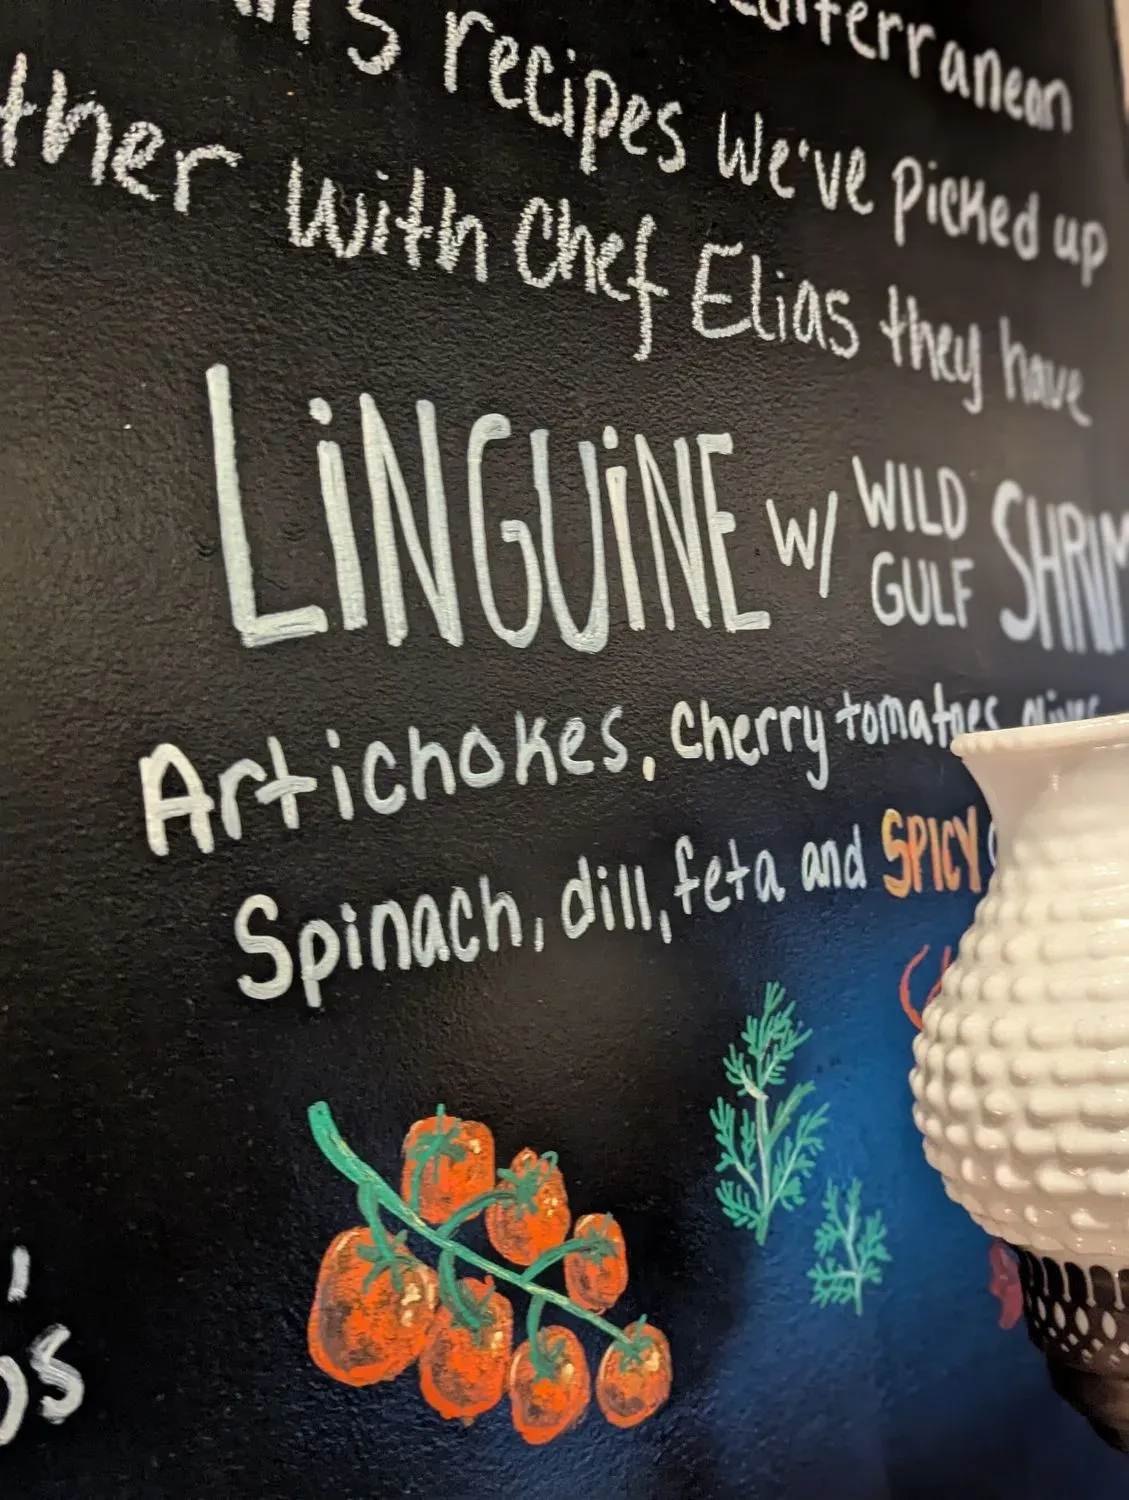 recipes we've picked up
with Chef Elias they have
LiNGUiNE w/ WILD GULF
Artichokes, cherry tomatoes
Spinach, dill, feta and SPICY